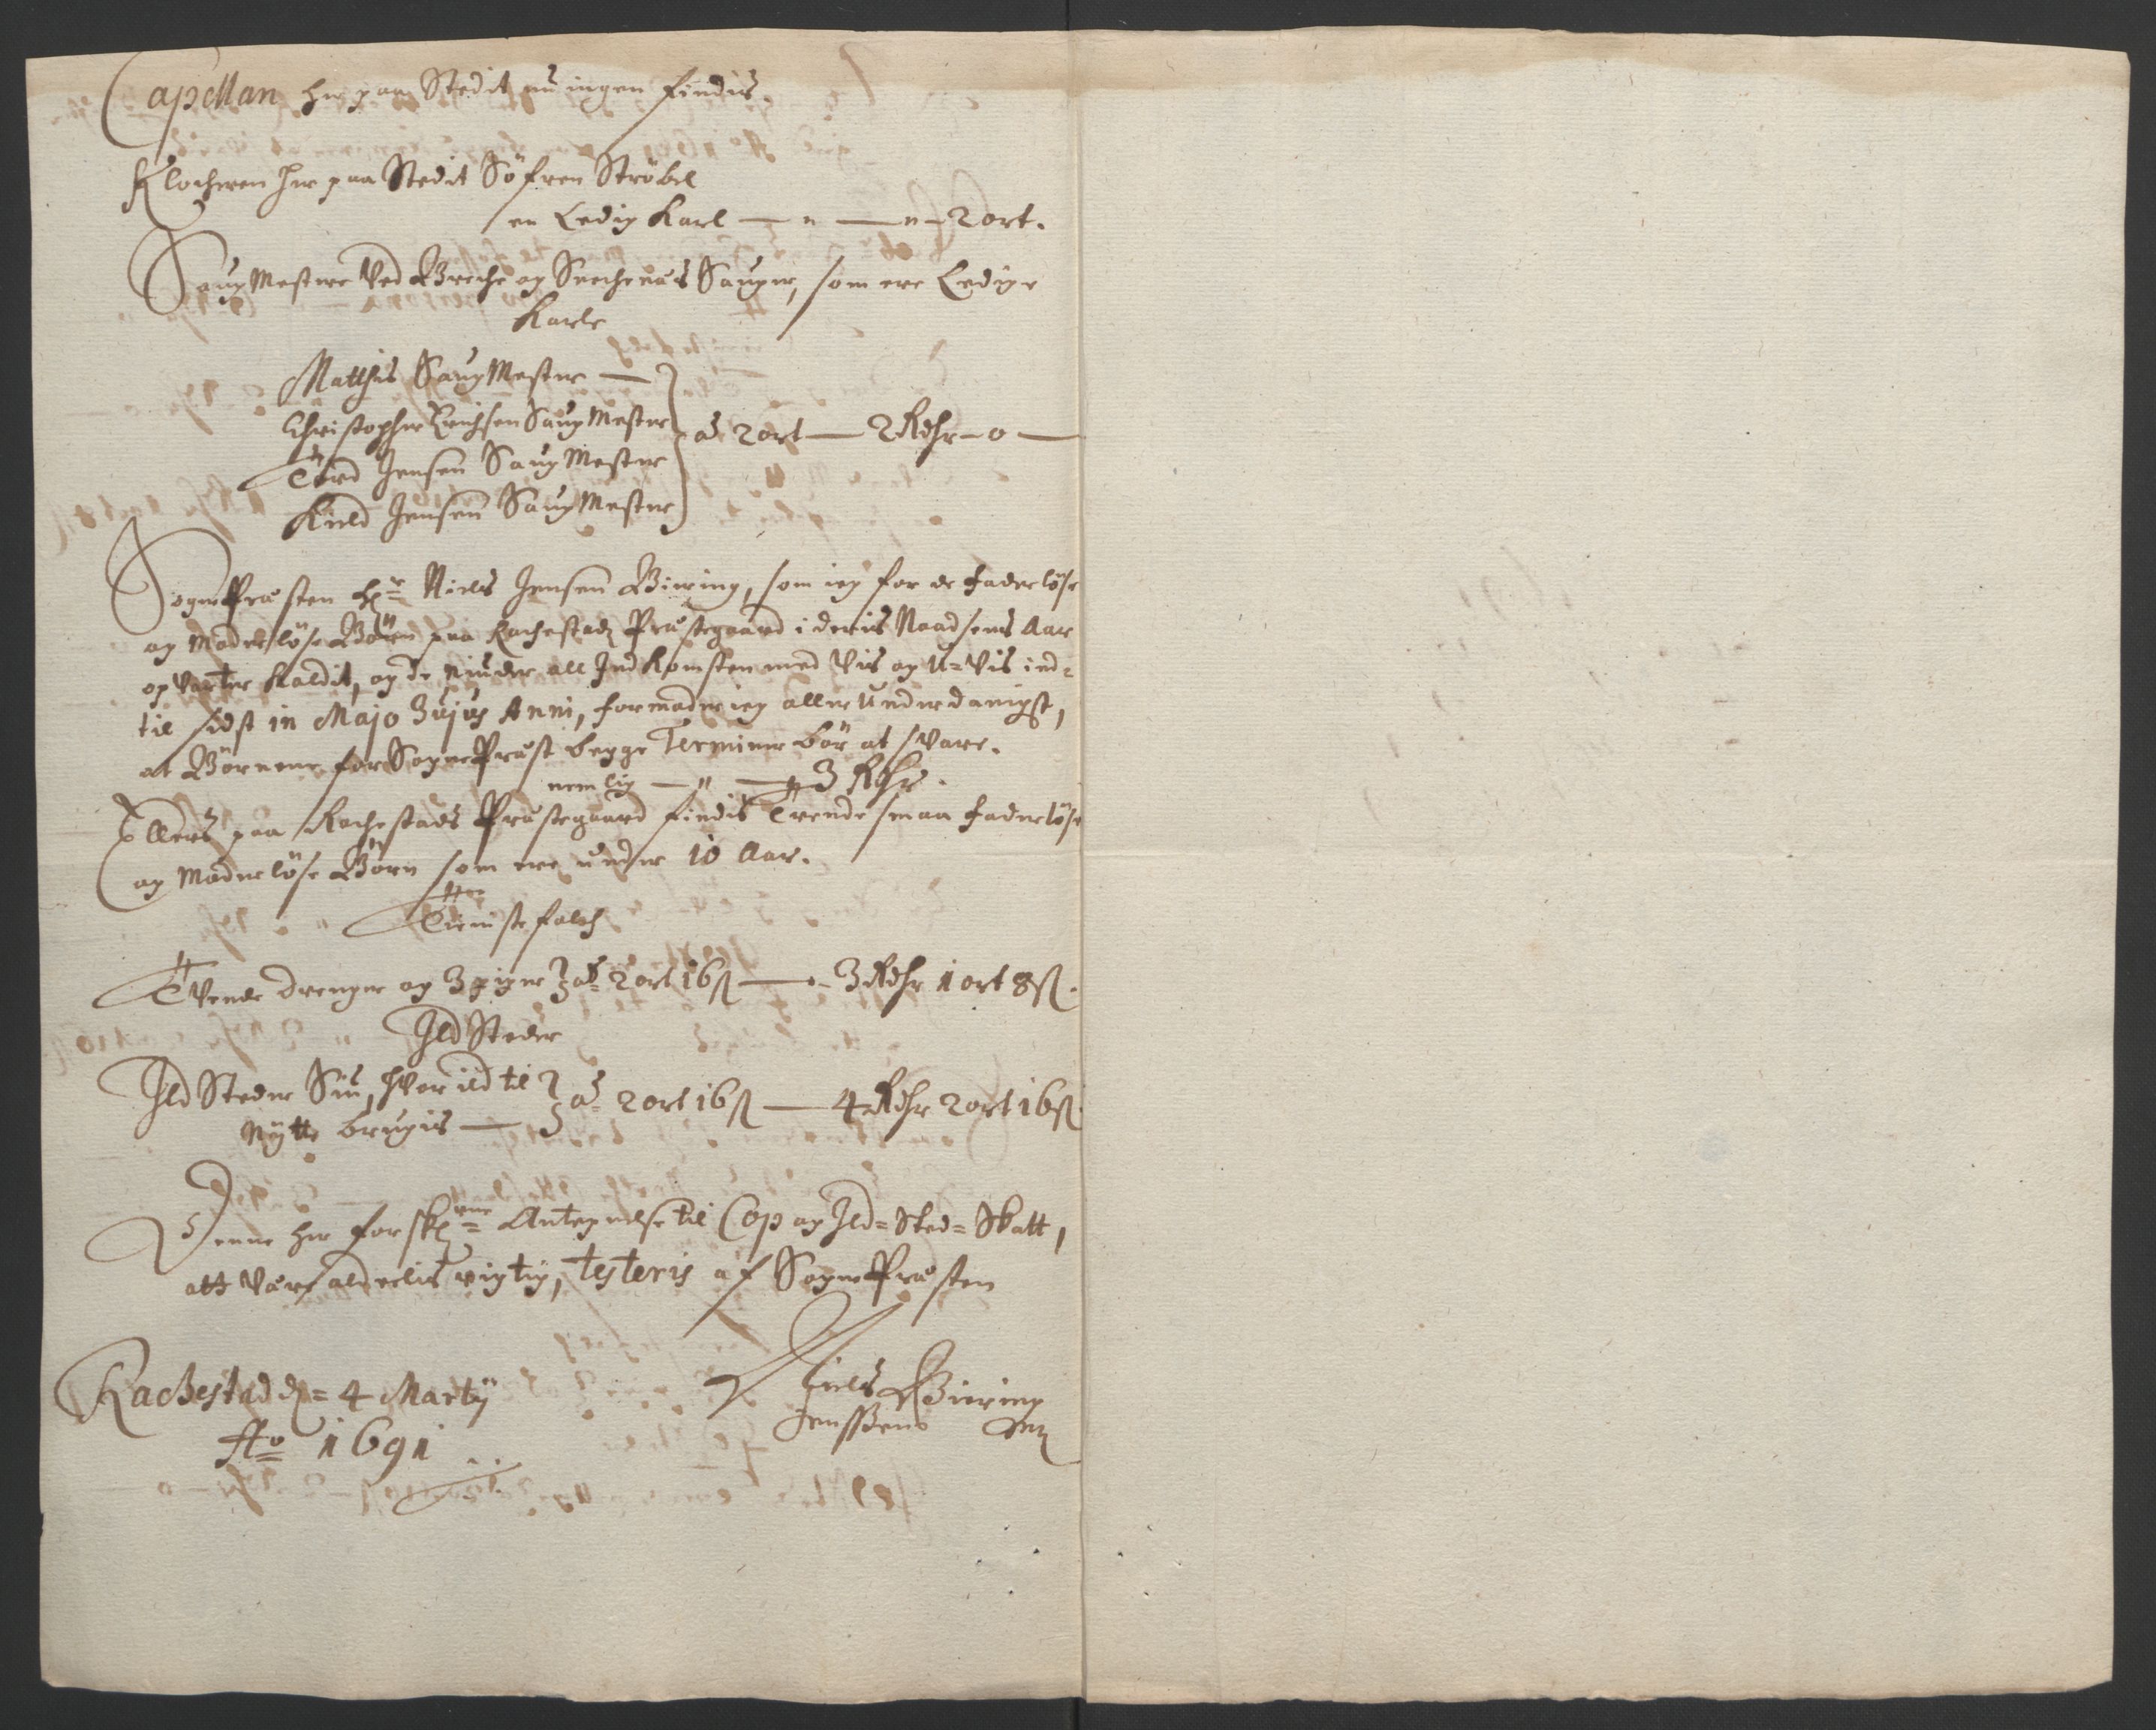 Capellan her paa Stedit nu ingen findis.
Klocheren her paa Stedit Söfren Ströbel
en Ledig Karl — " — " — 2 ort.
SaugMestere Ved Breche og Snechenæs Sauger, som ere Ledige
Karle
Matthis SaugMester —
Christopher Erichsen SaugMester
Tord Jensen SaugMester
Kield Jensen SaugMester
â 2 ort — 2 Rdhr — 0 —
SognePræsten Hr Niels Jensen Biering, som ieg for de faderlöse
og Moderlöse Börn paa Rachestad Præstegaard i deris Naadsens Aar
opVarter Kaldit, og de niuder all IndKomsten med Vis og U=Vis ind=
til sidst in Majo Hujus Anni, formoder ieg allerUnderdanigst,
at Börnene for SognePræst begge Terminer bör at svare.
nemlig — " — 3 Rdhr.
Ellers paa Rachestads Præstegaard findis Trende smaa faderlöse
og Moderlöse Börn som ere under 10 Aar.
Tienistefolch
Tvende drenger og 3 piger â 2 ort 16 ß — 3 Rdhr 1 ort 8 ß.
Ild Steder
Ild Steder Siu, hvor ild til
Nytte brugis — â 2 ort 16 ß — 4 Rdhr 2 ort 16 ß
Denne her forskrne Antegnelse til Cop og Ild=Sted=Skatt,
att være alderlis rigtig, testeris af SognePræsten
Rachestad d. 4 Martij
Ao 1691
Niels Biering
Jenssøn